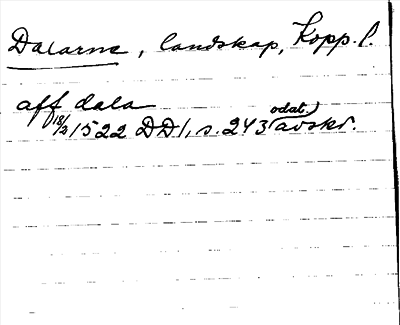 Dalarne, landskap, Kopp. l.
aff dala
18/2 1522 DD1, s. 243 (odat.) avskr.